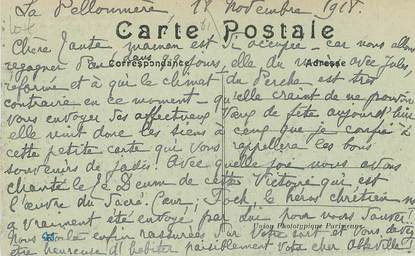 La Pellonnière 18 novembre 1918.
Carte Postale
Chère Tante, maman est si occupée – car nous allons
Correspondance
Adresse
regagner Paris dans jours, elle du moins avec Jules
réformé et à qui le climat du Perche est très
contraire en ce moment – qu'elle craint de ne pouvoir
vous envoyer ses affectueux vœux de fête aujourd'hui
elle unit donc les siens à ceux que je confie à
cette petite carte qui vous rappellera les bons
souvenirs de jadis. Avec quelle joie nous avons
chanté le Te Deum de cette Victoire qui est
l'œuvre du Sacré-Cœur, Foch, le héros chrétien nous
a vraiment été envoyé par Lui pour nous sauver.
Union Phototypique Parisienne
Nous voilà enfin rassurées sur votre sort et vous devez
être heureuse d'habiter paisiblement votre cher Abbeville